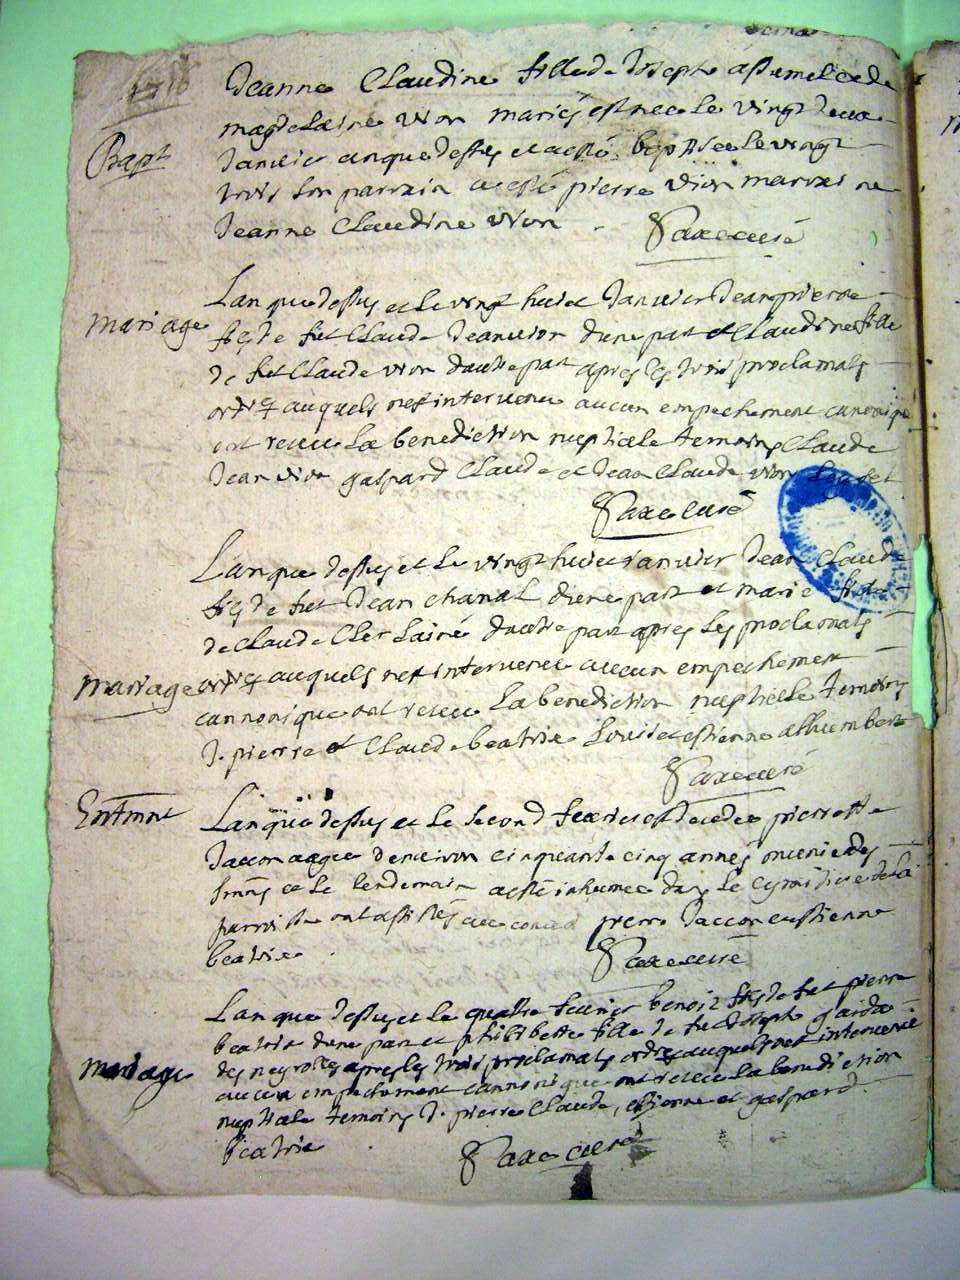 1716
Bapt
Jeanne Claudine fille de Joseph assumel et de
magdelaine vion mariés est née le vingt deux
Janvier an que dessus et a esté baptisée le vingt
trois son parrain a esté pierre vion marraine
Jeanne Claudine vion
Saxe curé
mariage
Lan que dessus et le vingt huict Janvier Jean pierre
fils de fut Claude Jean vion dune part et Claudine fille
de fut Claude vion dautre part apres les trois proclamats
auquels nest intervenu aucun empechement canonique
ont receu La benediction nuptiale temoins Claude
Jean vion gaspard Claude et Jean Claude vion
Saxe curé
Lan que dessus et le vingt huict Janvier Jean Claude
fils de fut Jean chanal dune part et marie fille
de Claude Clerc Lainé dautre part apres Les proclamats
mariage
auquels nest intervenu aucun empechement
cannonique ont receu La benediction nuptielle temoins
J. pierre et Claude beatrix Louis et estienne alhumbert
Saxe curé
Entmnt
Lan que dessus et le second fevrier est decedee pierrette
Jaccon aagee denviron cinquante cinq annés munie des
et le lendemain a esté inhumee dans le cymitiere de la
parroisse ont assistés au convoi pierre Jaccon estienne
beatrix
Saxe curé
mariage
Lan que dessus et le quattre fevrier benoit fils de fut pierre
beatrix dune part et philiberte fille de fut Joseph
des negrolles apres les trois proclamats auquels nest intervenu
aucun empechement cannonique ont receu La benediction
nuptiale temoins J. pierre Claude, estienne et gaspard
beatrix
Saxe curé